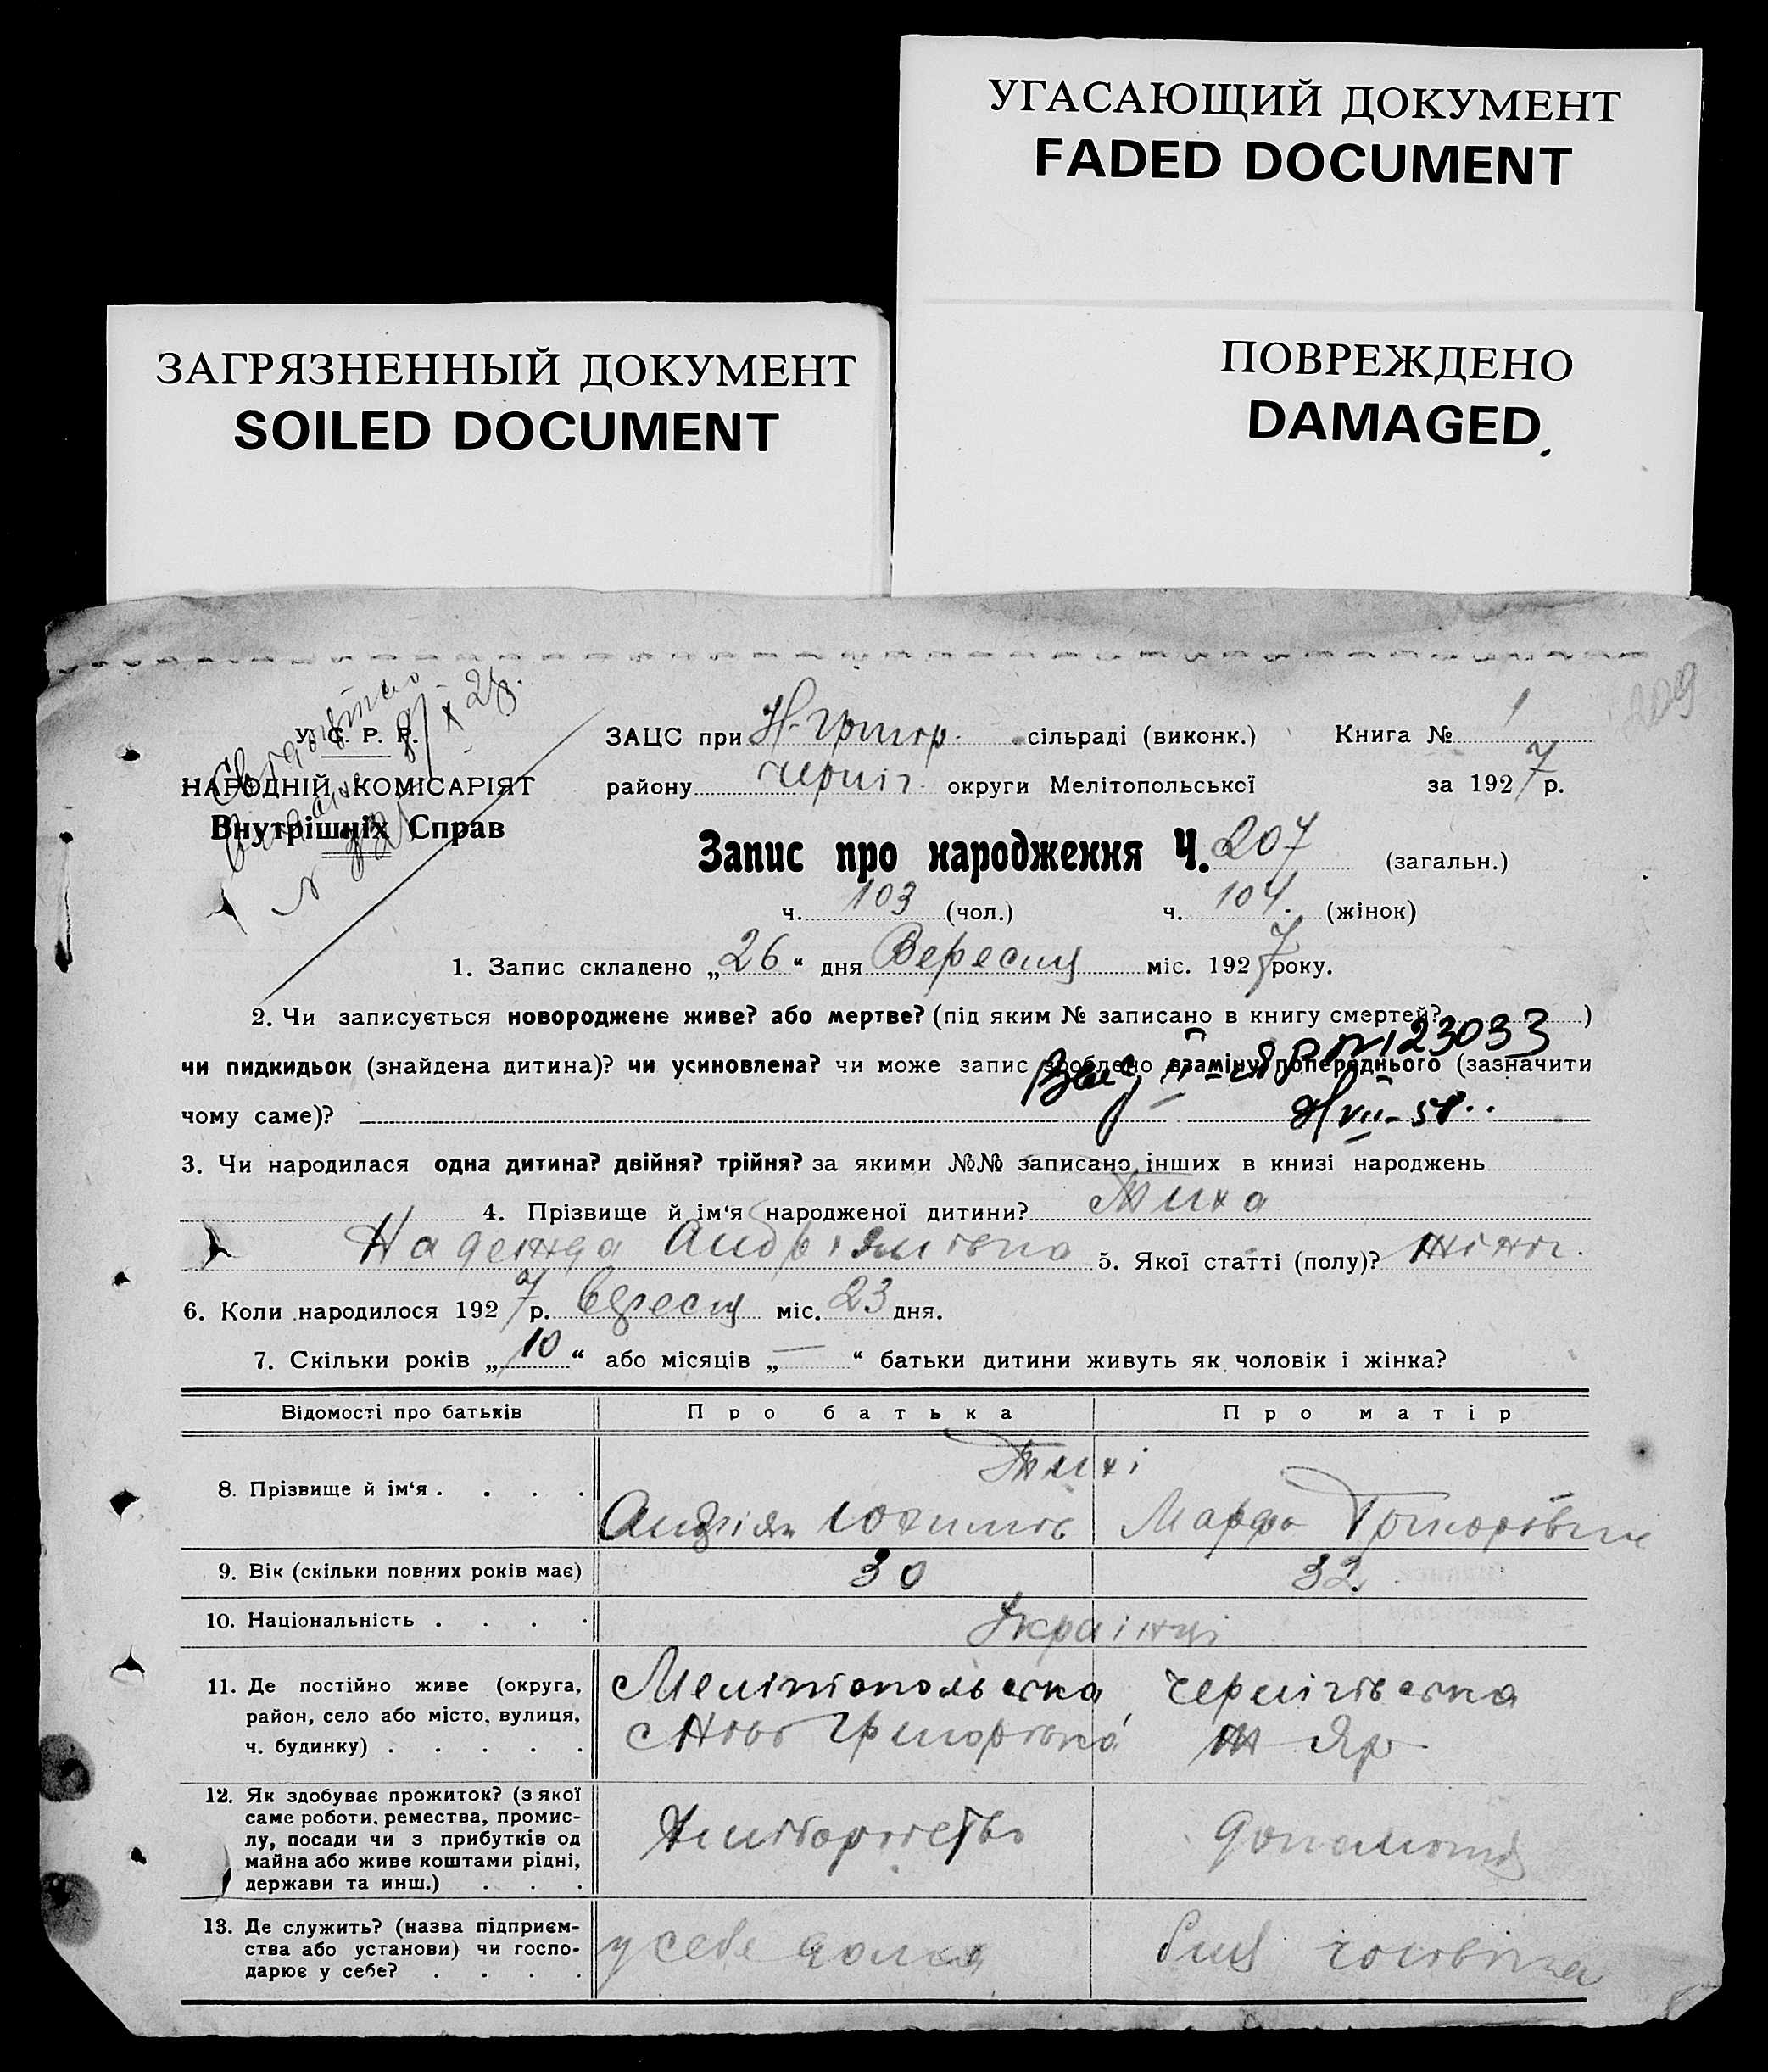 УГАСАЮЩИЙ ДОКУМЕНТ
FADED DOCUMENT
ЗАГРЯЗНЕННЫЙ ДОКУМЕНТ
SOILED DOCUMENT
ПОВРЕЖДЕНО
DAMAGED
209
У. С. Р. Р.
НАРОДНІЙ КОМІСАРІЯТ
Внутрішніх Справ
ЗАЦС при Н-Григор. сільраді (виконк.) Книга № 1
району Черніг. округи Мелітопольської за 1927 р.
Запис про народження Ч. 207 (загальн.)
ч. 103 (чол.) ч. 104. (жінок)
1. Запис складено „26“ дня Вересня міс. 1927 року.
2. Чи записується новороджене живе? або мертве? (під яким № записано в книгу смертей? )
чи пидкидьок (знайдена дитина)? чи усиновлена? чи може запис зроблено взаміну попереднього (зазначити
123033
чому саме)?
VII-58
3. Чи народилася одна дитина? двійня? трійня? за якими №№ записано інших в книзі народжень
4. Прізвище й ім‘я народженої дитини? Тиха
Надежда Андріянівна 5. Якої статті (полу)? жіноч.
6. Коли народилося 1927 р. вересня міс. 23 дня.
7. Скільки років „10“ або місяців „—“ батьки дитини живуть як чоловік і жінка?
Відомості про батьків Про батька Про матір
Тихі
8. Прізвище й ім‘я . . . . Андріян Юхимів Марфа Григорівна
9. Вік (скільки повних років має) 30 32
10. Національність . . . . Українці
11. Де постійно живе (округа, Мелітопольська Чернігівська
район, село або місто, вулиця, Ново Григорівка Яр
ч. будинку) . . . . .
12. Як здобуває прожиток? (з якої
саме роботи, ремества, промис-
лу, посади чи з прибутків од Хліборобство допомога
майна або живе коштами рідні,
держави та инш.) . . .
13. Де служить? (назва підприєм-
ства або установи) чи госпо- у себе дома біля чоловіка
дарює у себе? . . . .